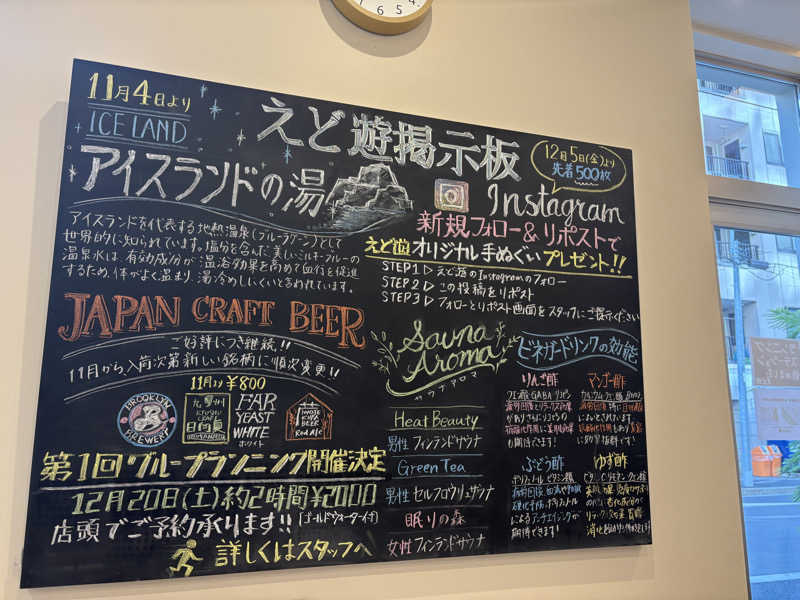 11月4日より
ICELAND
アイスランドの湯
えど遊掲示板
12月5日(金)より
先着500枚
Instagram
新規フォロー&リポストで
えど遊オリジナル手ぬぐいプレゼント!!
STEP1▷えど遊のInstagramのフォロー
STEP2▷この投稿をリポスト
STEP3▷フォローとリポスト画面をスタッフにご提示ください
アイスランドを代表する地熱温泉(ブルーラグーン)として
世界的に知られています。塩分を含んだ美しいミルキーブルーの
温泉水は、有効成分が温浴効果を高めて血行を促進
するため、体がよく温まり、湯冷めしにくいと言われています。
JAPAN CRAFT BEER
ご好評につき継続!!
11月から入荷次第新しい銘柄に順次変更!!
BROOKLYN
BREWERY
九州
CRAFT
日向夏
11月より¥800
FAR
YEAST
WHITE
ホワイト
BEER
Red Ale
第1回グループランニング開催決定
12月20日(土)約2時間¥2000
店頭でご予約承ります!!
詳しくはスタッフへ
Sauna
Aroma
サウナアロマ
Heat Beauty
男性 フィンランドサウナ
Green Tea
男性 セルフロウリュサウナ
眠りの森
女性 フィンランドサウナ
ビネガードリンクの効能
りんご酢
も期待できます!
マンゴー酢
ぶどう酢
によるアンチエイジングが
期待できます!
ゆず酢
6 5 4